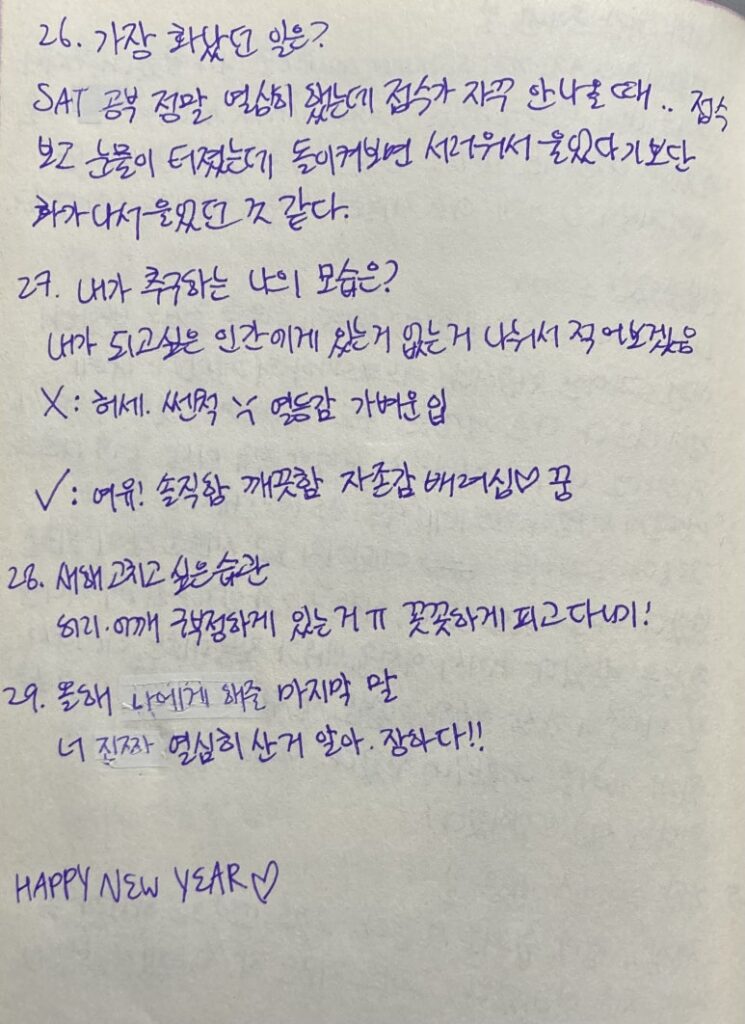 26. 가장 화났던 일은?
SAT 공부 정말 열심히 했는데 점수가 자꾸 안나올 때.. 점수
보고 눈물이 터졌는데 돌이켜보면 서러워서 울었다기보단
화가나서 울었던 것 같다.
27. 내가 추구하는 나의 모습은?
내가 되고싶은 인간이게 있는거 없는거 나눠서 적어보겠음
X: 허세. 썬척 열등감 가벼운입
✓: 여유! 솔직함 깨끗함 자존감 배려심♡ 꿈
28. 새해 고치고 싶은 습관
허리·어깨 구부정하게 있는거 ㅠ 꼿꼿하게 피고다니기!
29. 올해 나에게 해줄 마지막 말
너 진짜 열심히 산거 알아. 장하다!!
HAPPY NEW YEAR♡